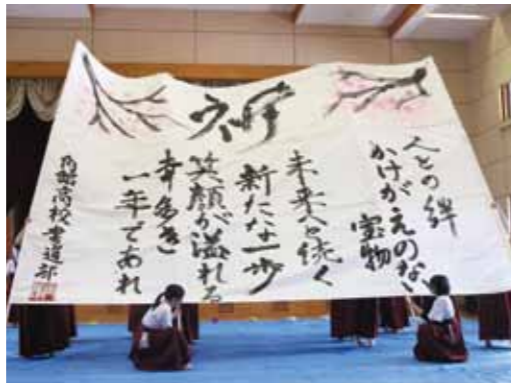 絆
人との絆
かけがえのない
宝物
未来へと続く
新たな一歩
笑顔が溢れる
幸多き
一年であれ
角館高校 書道部